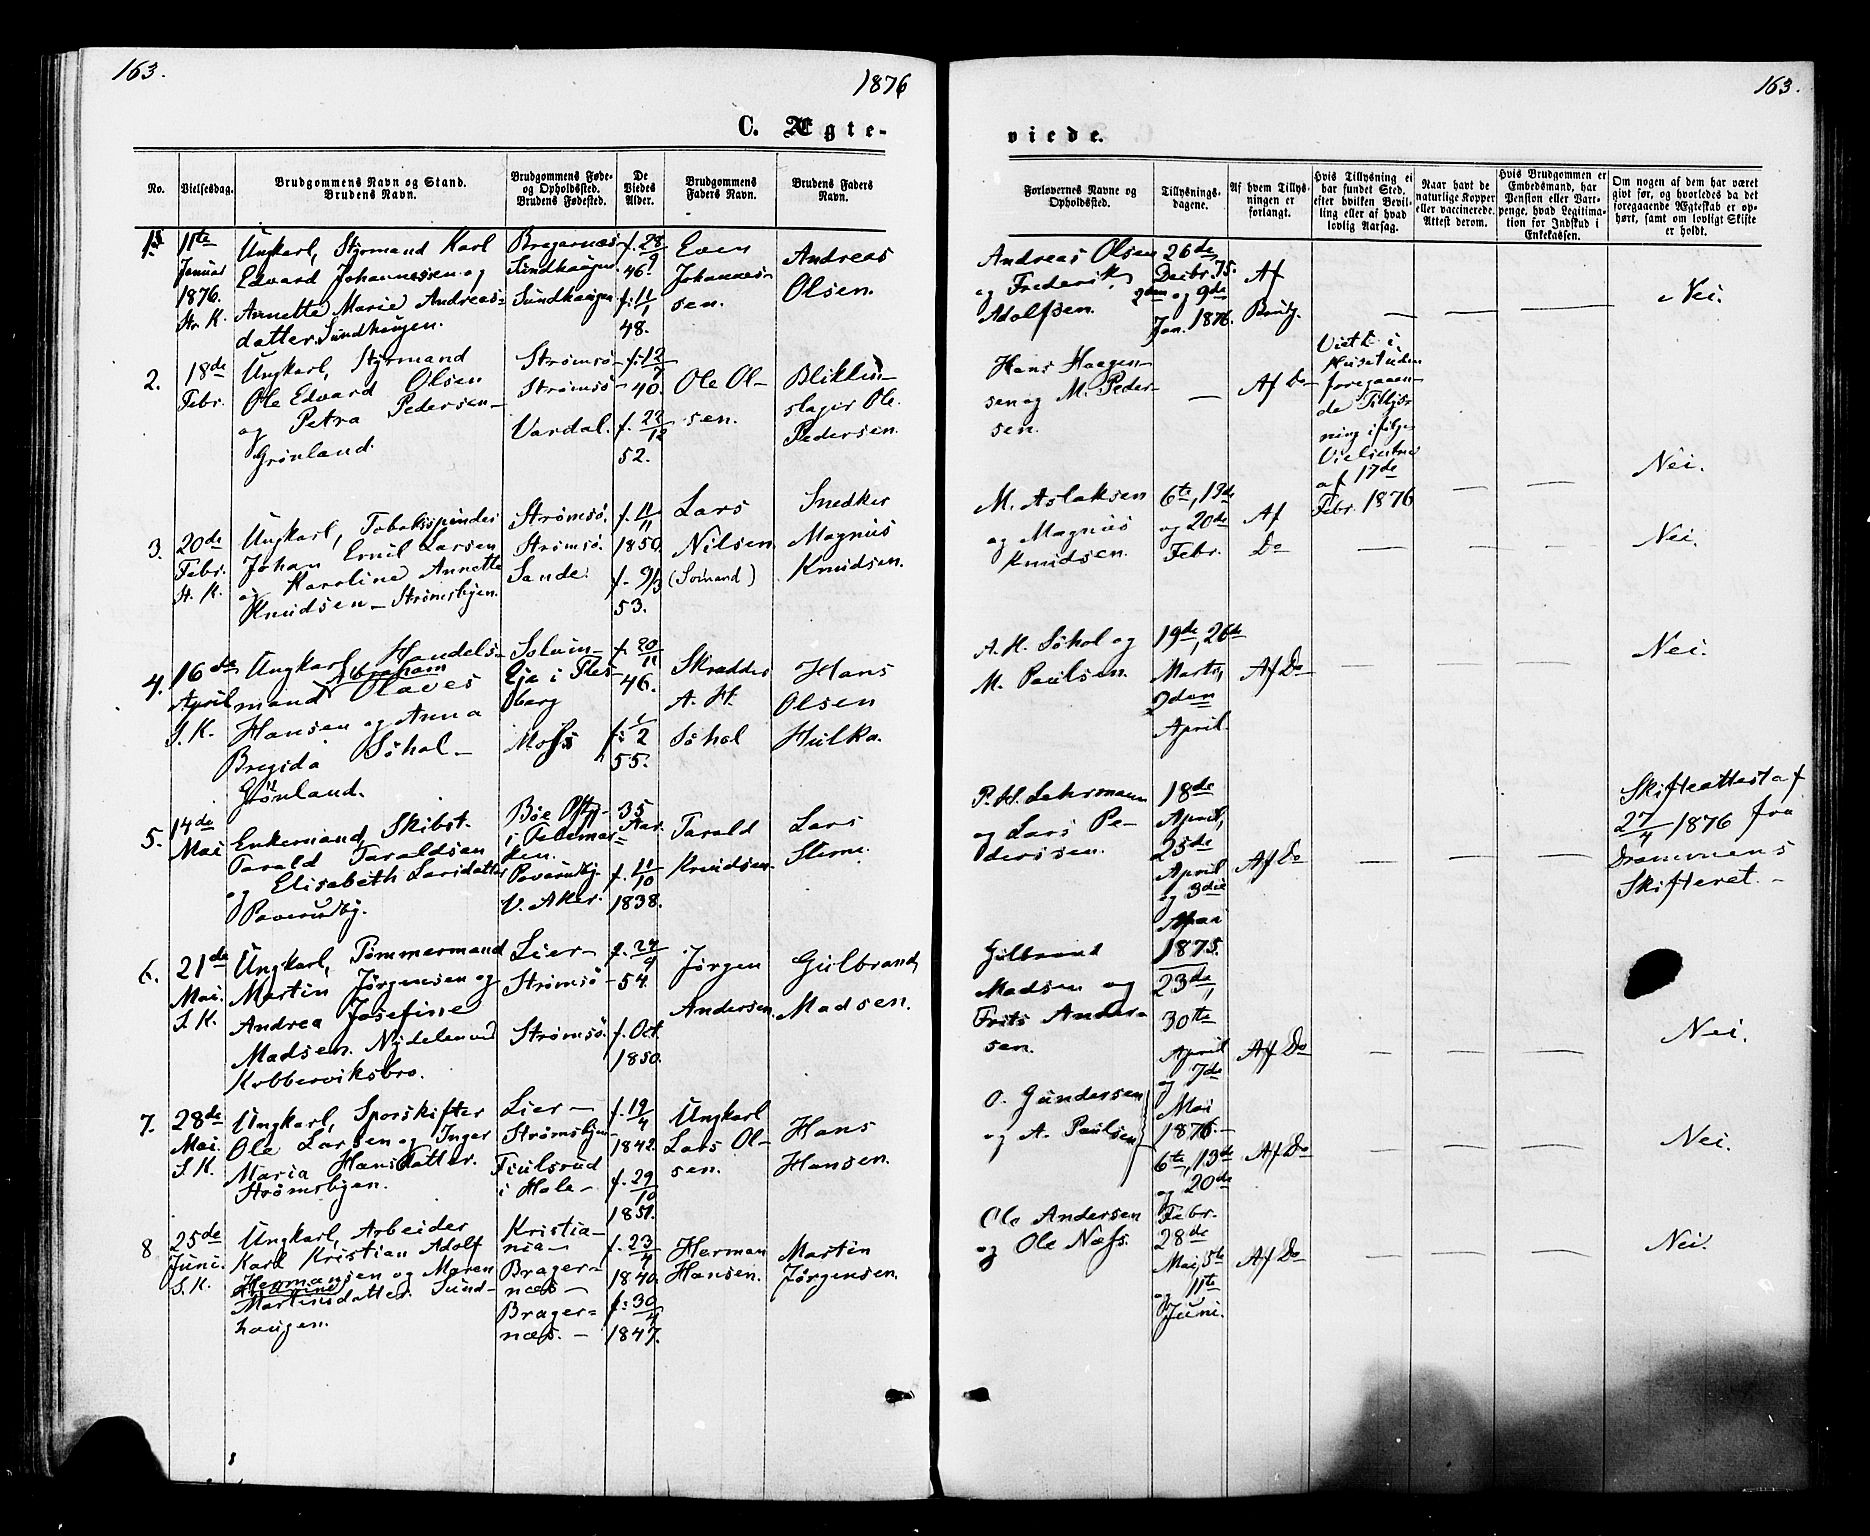 163.
1876
163.
C. Ægte-
viede.
No.
Vielsesdag.
Brudgommens Navn og Stand.
Brudens Navn.
Brudgommens Føde-
og Opholdssted.
Brudens Fødested.
De
Viedes
Alder.
Brudgommens
Faders Navn.
Brudens Faders
Navn.
Forlovernes Navne og
Opholdssted.
Tillysnings-
dagene.
Af hvem Tillys-
ningen er
forlangt.
Hvis Tillysning ei
har fundet Sted,
efter hvilken Bevil-
ling eller af hvad
lovlig Aarsag.
Naar havt de
naturlige Kopper
eller vaccinerede.
Attest derom.
Hvis Brudgommen er
Embedsmand, har
Pension eller Vart-
penge, hvad Legitima-
tion for Indskud i
Enkekassen.
Om nogen af dem har været
givt før, og hvorledes da det
foregaaende Ægteskab er op-
hørt, samt om lovligt Skifte
er holdt.
11te
Januar
1876.
Str. K.
Ungkarl, Styrmand Karl
Edvard Johannessen og
Annette Marie Andreas-
datter. Sundhaugen.
Bragernæs
Sundhaugen
Sundhaugen
f. 28/9
46.
f. 11/1
48.
Even
Johannes-
sen.
Andreas
Olsen.
Andreas Olsen
og Frederik
Adolfsen.
26de
Decbr. 75.
2den og 9de
Jan. 1876.
Af
Brudg.
—
—
—
Nei.
2.
18de
Febr.
Ungkarl, Styrmand
Ole Edvard Olsen
og Petra Pedersen—
Grönland.
Strømsö—
Strømsö—
Vardal.
f. 12/7
40.
f. 22/12
52.
Ole Ol-
sen.
slager Ole
Pedersen.
Hans Haagen-
sen og M. Peder-
sen.
—
Af Do
Viet i
Huset uden
foregaaen-
de Tillys-
ning ifølge
af 17de
Febr. 1876
—
—
Nei.
3.
20de
Febr.
St. K.
Ungkarl, Tobaksspinder
Johan Emil Larsen
og Karoline Annette
Knudsen— Strømsbyen.
Strømsö.
Strömsö.
Sande.
f. 11/11
1850.
f. 9/3
53.
Lars
Nilsen.
(Sömand)
Snedker
Magnus
Knudsen.
M. Aslaksen
og Magnus
Knudsen.
6te, 13de
og 20de
Febr.
Af
Do
—
—
—
Nei.
4.
16de
April
S. K.
Ungkarl, Handels-
Abraham
mand Olaves
Hansen og Anna
Bregida Söhol—
Grönland.
Solum—
Eje i Fles-
berg
Moss
f. 20/11
46.
2
55.
Skrædder
A. H.
Söhol
Hans
Olsen
Hulka.
A. H. Söhol og
M. Paulsen.
19de, 26de
Marts,
2den
April.
Af Do
—
—
—
Nei.
5.
14de
Mai
Enkemand, Skibst.
Tarald Taraldsen
og Elisabeth Larsdatter
Paverudby.
Böe
i Telemar-
ken.
Paverudby.
V. Aker.
35
Aar.
f. 11/10
1838.
Tarald
Knudsen.
Lars
P. H. Lehrmann
og Lars Pe-
dersen.
18de
April,
25de
April
og 3die
Af Do
—
—
—
Skifteattest af
27/4 1876 fra
Drammens
Skifteret.—
6.
21de
Mai.
S. K.
Ungkarl, Tömmermand
Martin Jörgensen og
Andrea Josefine
Madsen. Nydelen ved
Kobberviksbro.
Lier—
Strømsö—
Strømsö.
f. 24/9
54.
f. Oct.
1850.
Jörgen
Andersen.
Gulbrand
Madsen.
Gulbrand
Madsen og
Frits Ander-
sen.
1875.
23de,
30te
April
og 7de
Mai
1876.—
Af Do
—
—
—
Nei.
7.
28de
Mai.
S. K.
Ungkarl, Sporskifter
Ole Larsen og Inger
Maria Hansdatter.
Strømsbyen.
Lier—
Strømsbyen
i Hole—
f. 19/4
1842.
f. 29/10
1851.
Ungkarl
Lars Ol-
sen.
Hans
Hansen.
O. Gundersen
og A. Paulsen
6te, 13de
og 20de
Febr.
Af Do
—
—
—
Nei.
8
25de
Juni.
S. K.
Ungkarl, Arbeider
Karl Kristian Adolf
Hermansen og Maren
Martinsdatter. Sund-
haugen.
Kristia-
nia—
Brager-
næs—
Brager-
næs.—
f. 23/4
1840.
f. 30/4
1847.
Herman
Hansen.
Martin
Jørgensen.
Ole Andersen
og Ole Næss.
28de
Mai, 5te
og 11te
Juni.
Af Do
—
—
—
Nei.